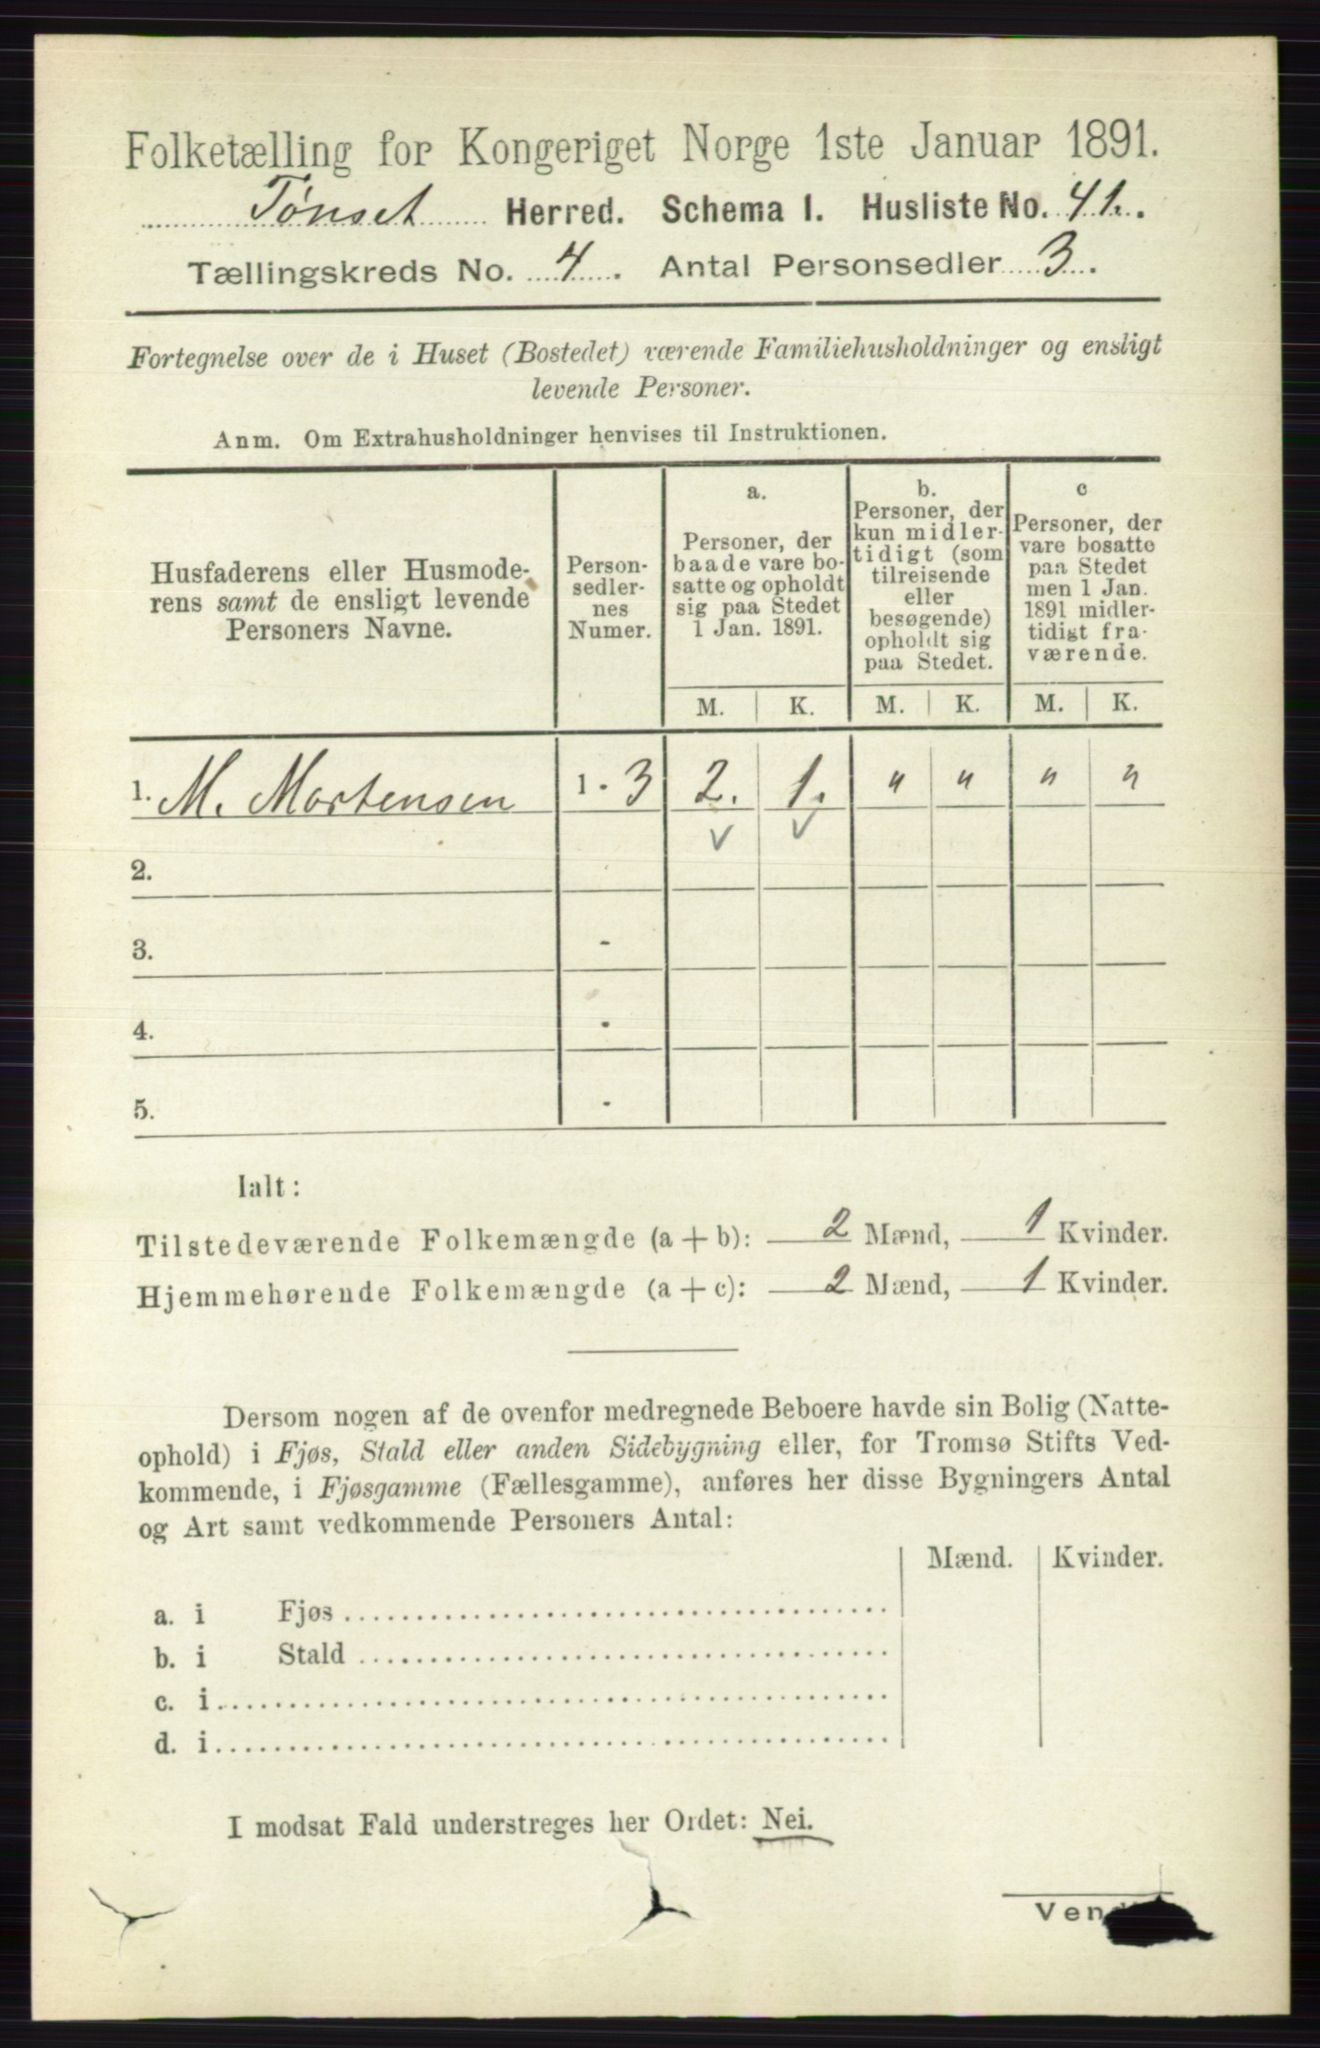 Folketælling for Kongeriget Norge 1ste Januar 1891.
Tønset Herred. Schema I. Husliste No. 41.
Tællingskreds No. 4. Antal Personsedler 3.
Fortegnelse over de i Huset (Bostedet) værende Familiehusholdninger og ensligt
levende Personer.
Anm. Om Extrahusholdninger henvises til Instruktionen.
Husfaderens eller Husmode-
rens samt de ensligt levende
Personers Navne.
Person-
sedler-
nes
Numer.
a.
Personer, der
baade vare bo-
satte og opholdt
sig paa Stedet
1 Jan. 1891.
b.
Personer, der
kun midler-
tidigt (som
tilreisende
eller
besøgende)
opholdt sig
paa Stedet.
c
Personer, der
vare bosatte
paa Stedet
men 1 Jan.
1891 midler-
tidigt fra-
værende.
M. K. M. K. M. K.
1. M. Mortensen 1 - 3 2. 1. " " " "
2.
3. -
4. -
5. -
Ialt:
Tilstedeværende Folkemængde (a + b): 2 Mænd, 1 Kvinder.
Hjemmehørende Folkemængde (a + c): 2 Mænd, 1 Kvinder.
Dersom nogen af de ovenfor medregnede Beboere havde sin Bolig (Natte-
ophold) i Fjøs, Stald eller anden Sidebygning eller, for Tromsø Stifts Ved-
kommende, i Fjøsgamme (Fællesgamme), anføres her disse Bygningers Antal
og Art samt vedkommende Personers Antal:
Mænd. Kvinder.
a. i Fjøs
b. i Stald
c. i
d. i
I modsat Fald understreges her Ordet: Nei.
Vend